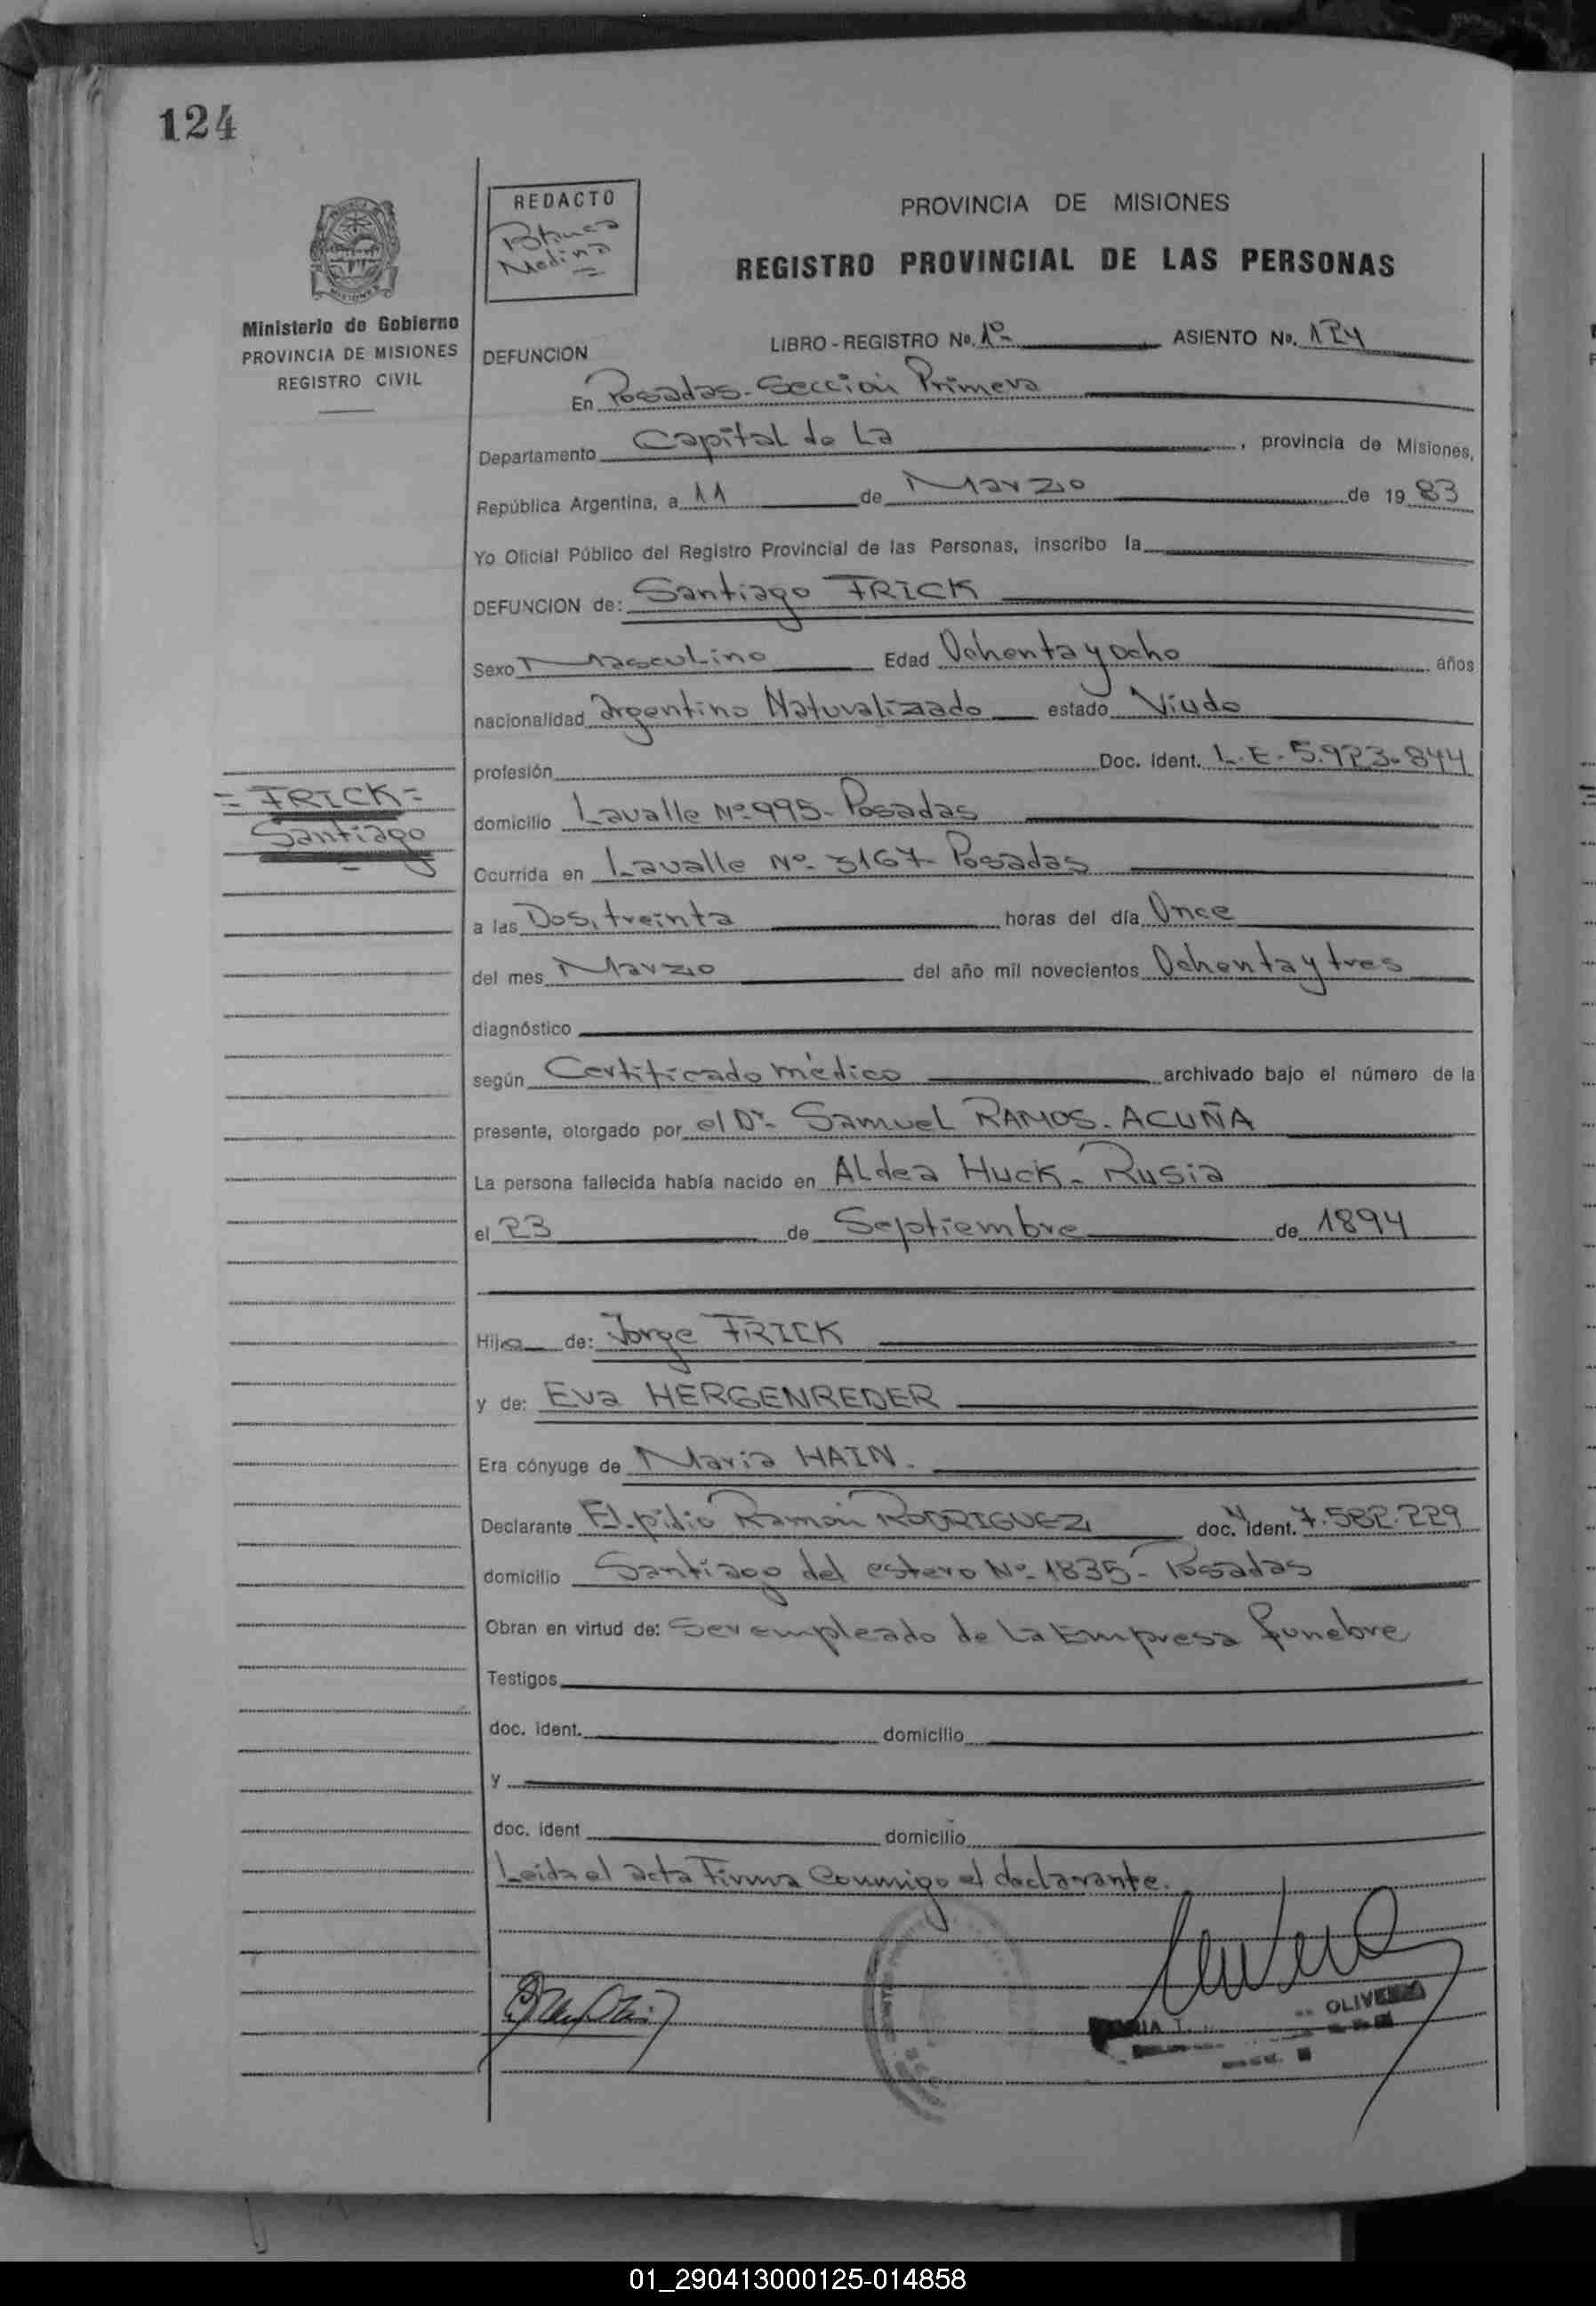 124
REDACTO
Blanca
Medina
PROVINCIA DE MISIONES
REGISTRO PROVINCIAL DE LAS PERSONAS
Ministerio de Gobierno
PROVINCIA DE MISIONES
REGISTRO CIVIL
DEFUNCION LIBRO - REGISTRO No. 1º- ASIENTO No. 124
En Posadas- Sección Primera
Departamento Capital de La, provincia de Misiones,
República Argentina, a 11 de Marzo de 1983
Yo Oficial Público del Registro Provincial de las Personas, inscribo la
DEFUNCION de: Santiago FRICK
Sexo Masculino Edad Ochenta y ocho años
nacionalidad Argentino Naturalizado estado Viudo
profesión Doc. Ident. L.E. 5.923.844
= FRICK =
Santiago
domicilio Lavalle Nº 995- Posadas
Ocurrida en Lavalle Nº- 3167- Posadas
a las Dos, treinta horas del día Once
del mes Marzo del año mil novecientos Ochenta y tres
diagnóstico
según Certificado médico archivado bajo el número de la
presente, otorgado por el Dr- Samuel RAMOS. ACUÑA
La persona fallecida había nacido en Aldea Huck- Rusia
el 23 de Septiembre de 1894
Hijo de: Jorge FRICK
y de: Eva HERGENREDER
Era cónyuge de Maria HAIN.
Declarante Elpidio Ramón RODRIGUEZ doc. ident. 7.582.229
domicilio Santiago del estero Nº- 1835- Posadas
Obran en virtud de: Ser empleado de La Empresa funebre
Testigos
doc. ident. domicilio
y
doc. ident domicilio
Leida el acta Firma Conmigo el declarante.
OLIVERA
01_290413000125-014858